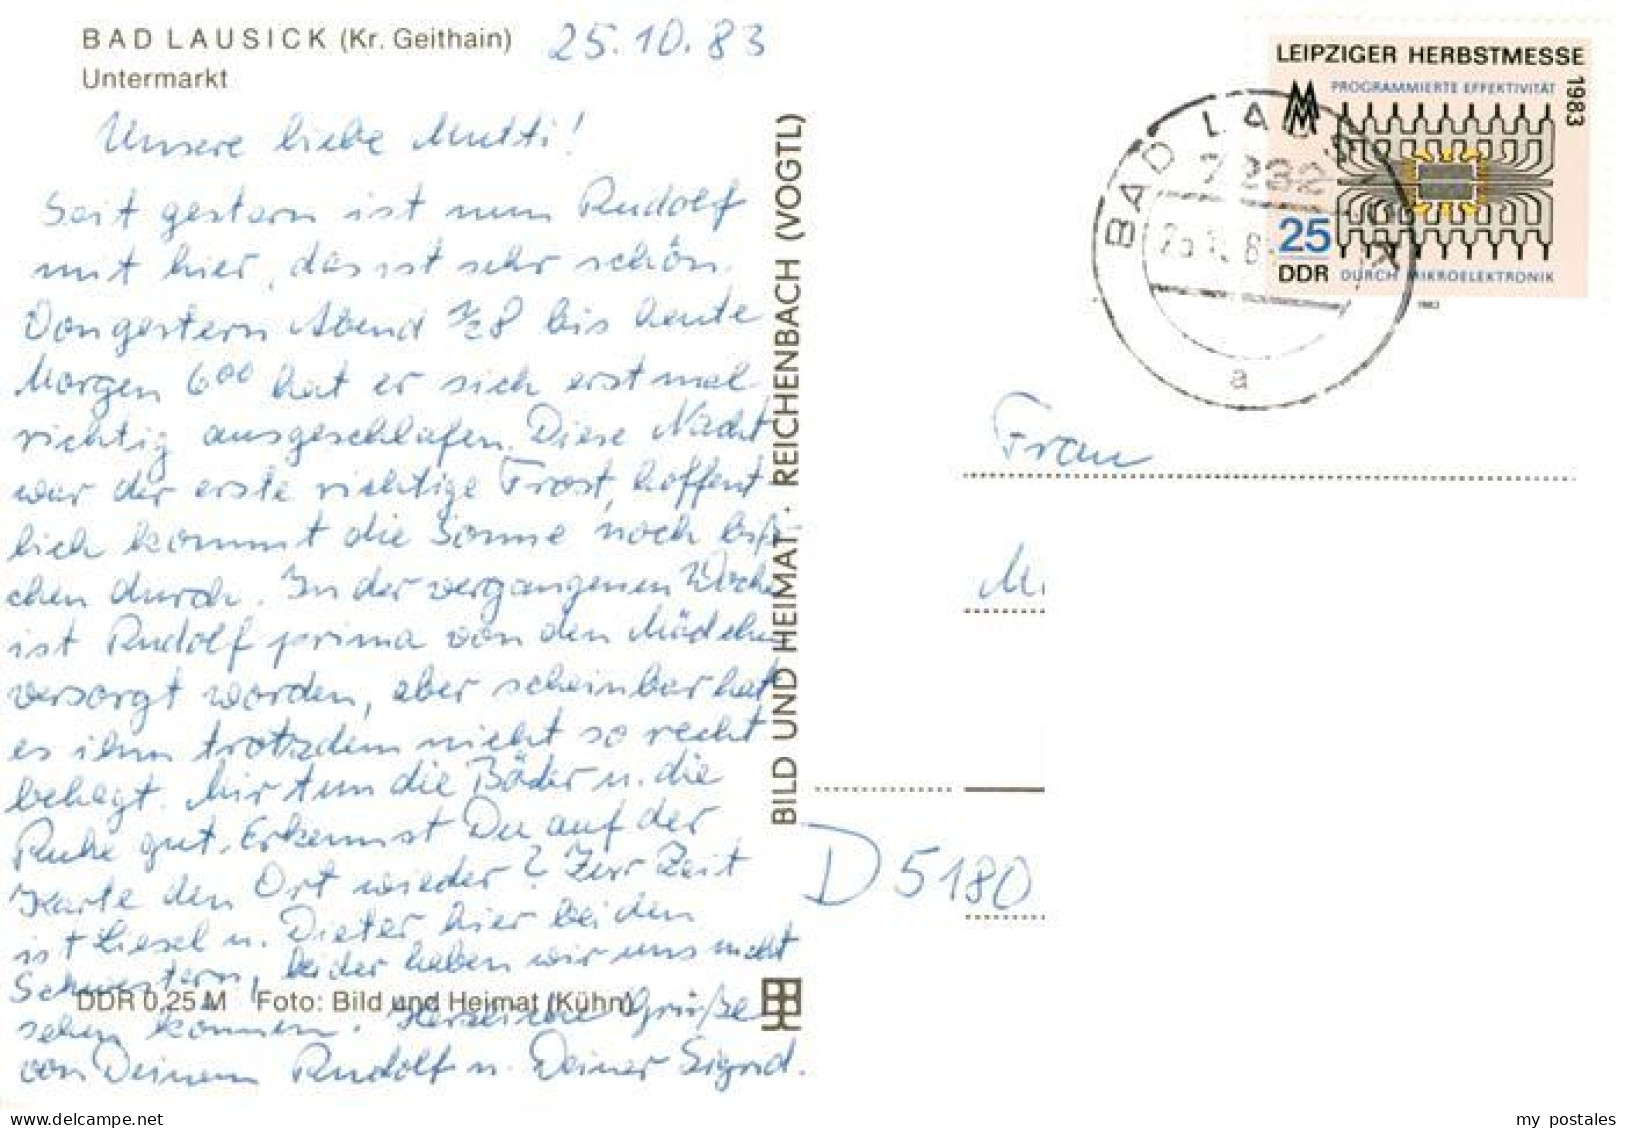 BAD LAUSICK (Kr. Geithain)
Untermarkt
25.10.83
Unsere liebe Mutti!
Seit gestern ist nun Rudolf
mit hier, das ist sehr schön.
Von gestern Abend ½8 bis heute
Morgen 6⁰⁰ hat er sich erst mal
richtig ausgeschlafen. Diese Nacht
war der erste richtige Frost, hoffent
lich kommt die Sonne noch biß-
chen durch. In der vergangenen Woche
ist Rudolf prima von den Mädchen
versorgt worden, aber scheinbar hat
es ihm trotzdem nicht so recht
behagt. Mir tun die Bäder u. die
Ruhe gut. Erkennst Du auf der
Karte den Ort wieder? Zur Zeit
ist Liesel u. Dieter hier bei den
Schwestern, leider haben wir uns nicht
sehen können. Herzliche Grüße
von Deinem Rudolf u. Deiner Sigrid.
DDR 0,25 M Foto: Bild und Heimat (Kühn)
BILD UND HEIMAT · REICHENBACH (VOGTL)
LEIPZIGER HERBSTMESSE
1983
PROGRAMMIERTE EFFEKTIVITÄT
25
DDR
DURCH MIKROELEKTRONIK
1983
BAD LAUSICK
7232
a
Frau
D 5180
my postales